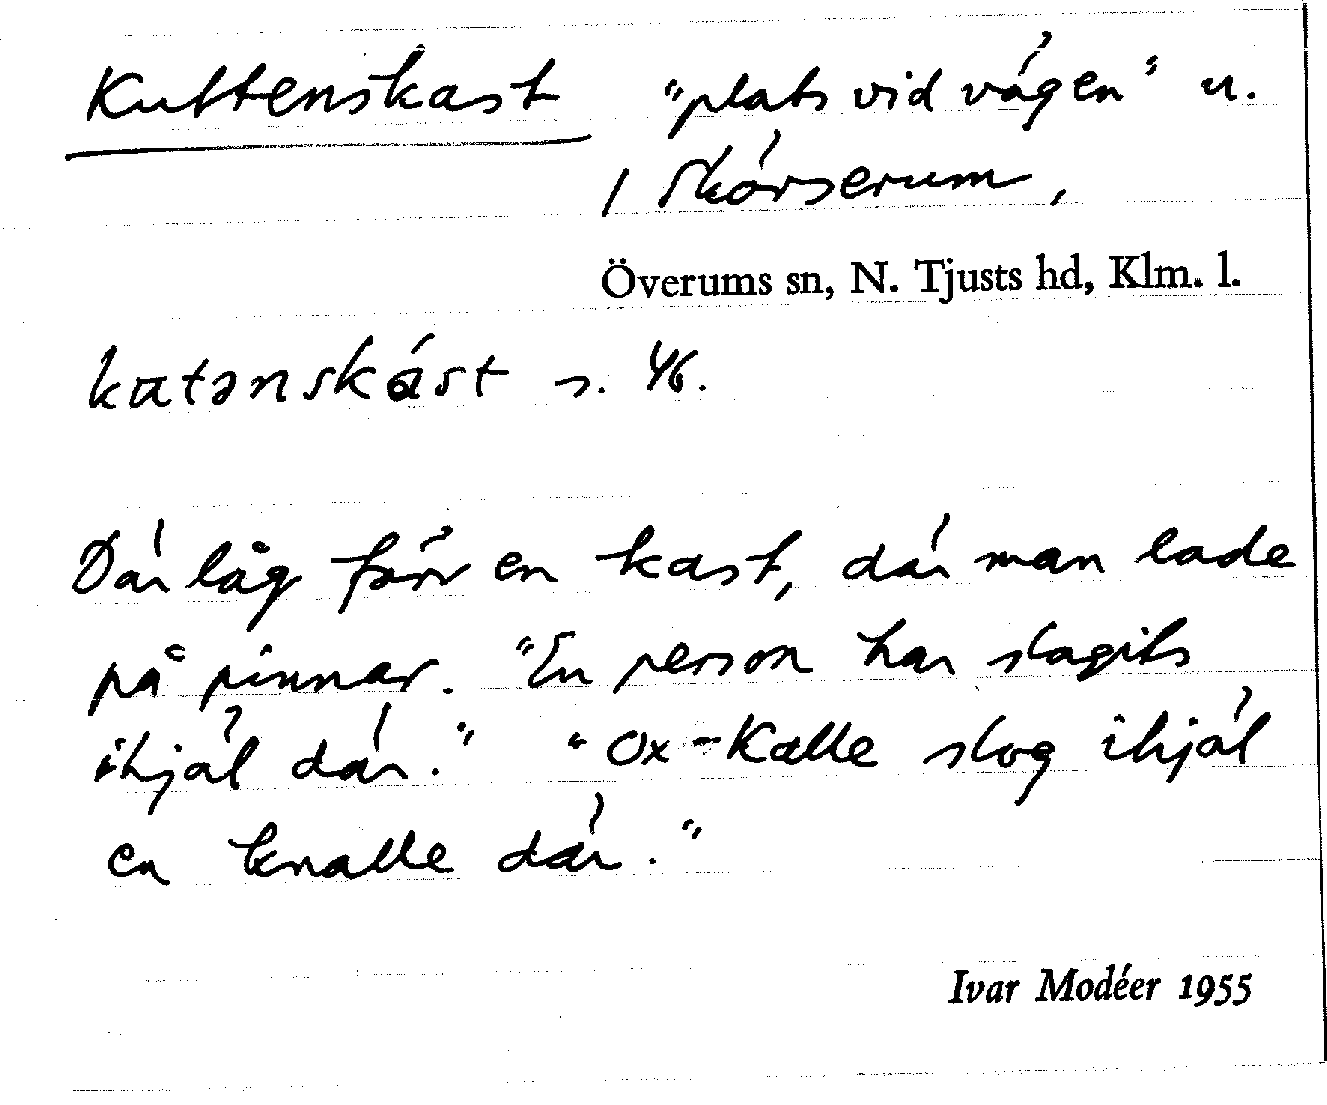 Kuttenskast "plats vid vägen" u.
1 Skörserum,
Överums sn, N. Tjusts hd, Klm. l.
kutənskást s. 46.
Där låg förr en kast, där man lade
på pinnar. "En person har slagits
ihjäl där." "Ox-Kalle slog ihjäl
en knalle där."
Ivar Modéer 1955